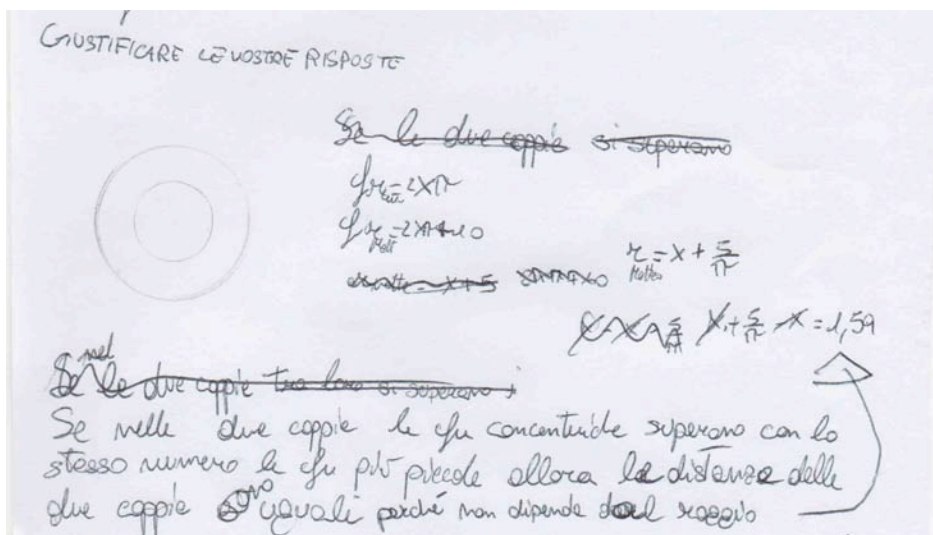 GIUSTIFICARE LE VOSTRE RISPOSTE
Se le due coppie si superano
= 2xπ
= 2xπ+10
r Matteo = x + 5/π
x + 5/π - x = 1,59
nel
Se le due coppie tra loro si superano
Se nelle due coppie le cfr concentriche superano con lo
stesso numero le cfr più piccole allora la distanza delle
due coppie sono uguali perché non dipende dal raggio